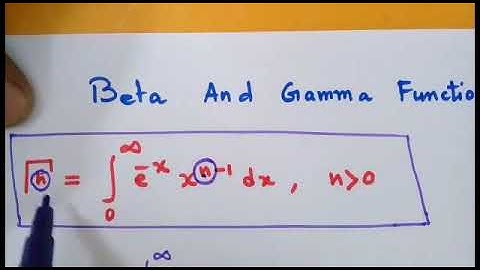 Beta And Gamma Functio
Γn = ∫₀^∞ e^-x x^n-1 dx, n>0
∞